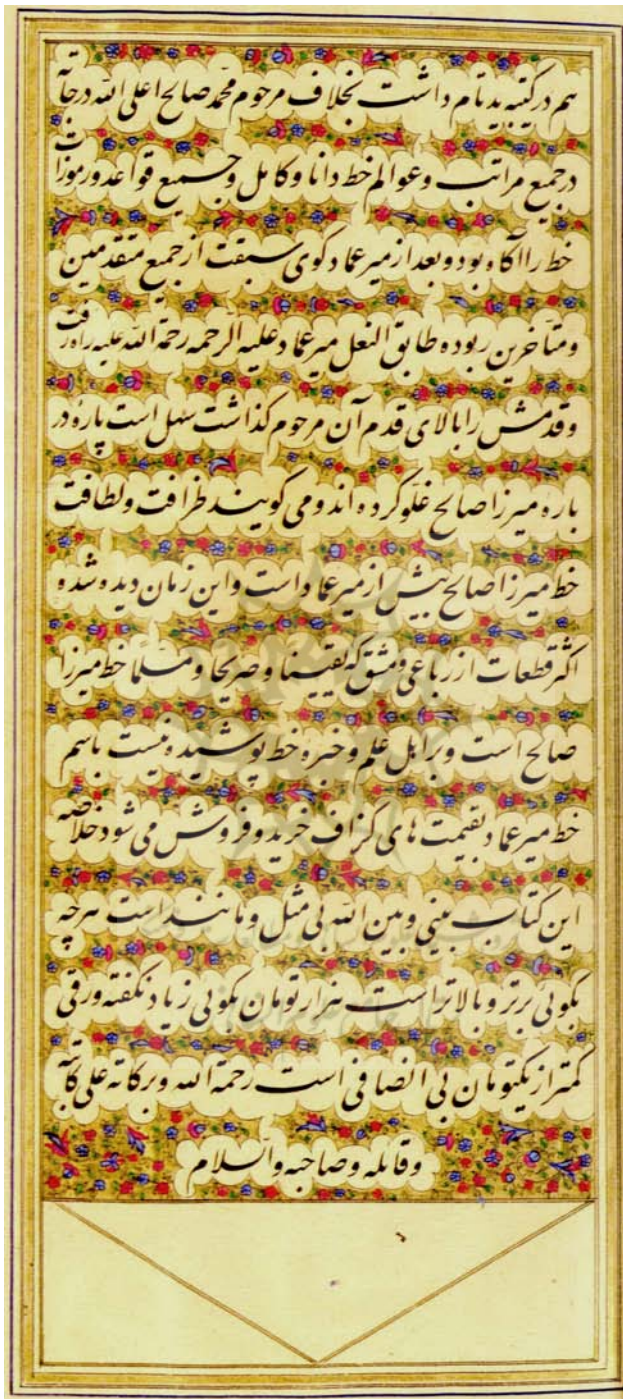 هم در کتیبه ید تام داشت بخلاف مرحوم محمد صالح اعلی الله درجاته
در جمیع مراتب و عوالم خط دانا و کامل و جمیع قواعد و رموزات
خط را آگاه بود و بعد از میر عماد گوی سبقت از جمیع متقدمین
و متأخرین ربوده طابق النعل میر عماد علیه الرحمه رحمة الله علیه راه رفت
و قدمش را بالای قدم آن مرحوم گذاشت سهل است پارهٔ در
باره میرزا صالح غلو کرده اند و می گویند ظرافت و لطافت
خط میرزا صالح بیش از میر عماد است و این زمان دیده شده
اکثر قطعات از رباعی و مشق که یقینا و صریحا و مسلما خط میرزا
صالح است و بر اهل علم و خبره خط پوشیده نیست باسم
خط میر عماد بقیمت های گزاف خرید و فروش می شود خلاصه
این کتاب بینی و بین الله بی مثل و مانند است هر چه
بگوئی برتر و بالاتر است هزار تومان بگوئی زیاد نگفته ورقی
کمتر از یکتومان بی انصافی است رحمة الله و برکاته علی کاتبه
و قائله و صاحبه والسلام